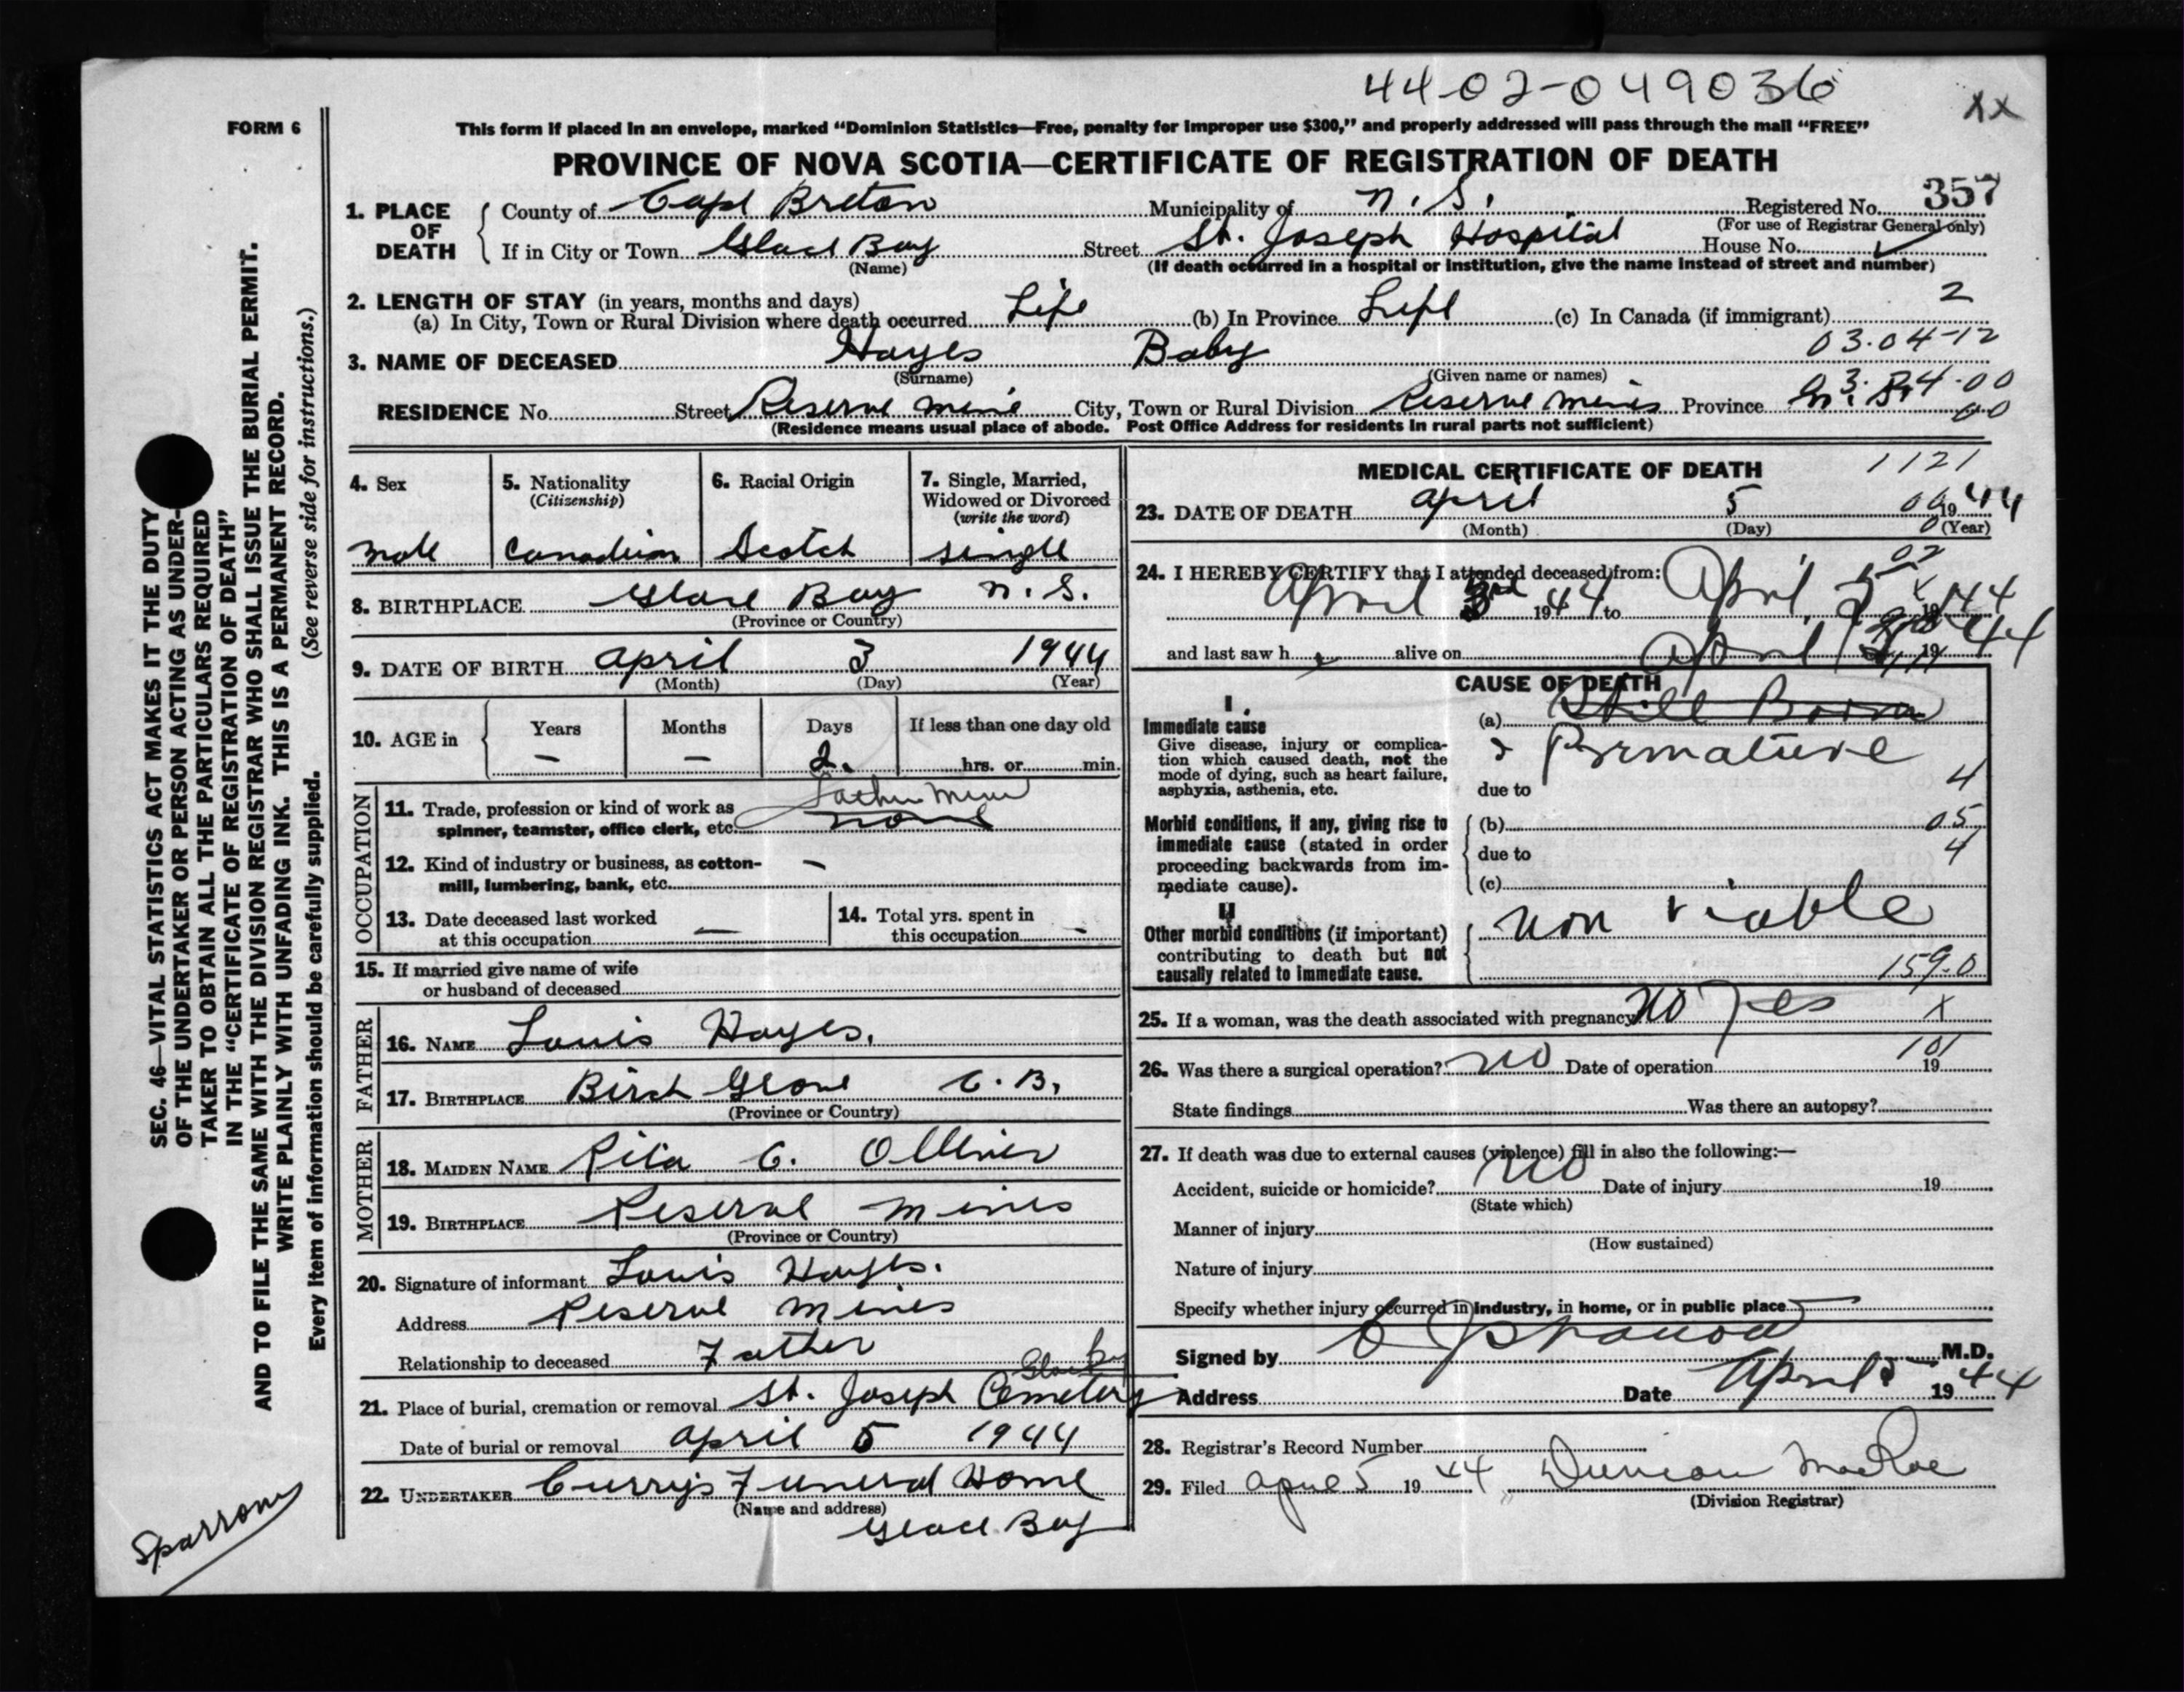 44-02-049036
XX
FORM 6
This form if placed in an envelope, marked “Dominion Statistics—Free, penalty for improper use $300,” and properly addressed will pass through the mail “FREE”
PROVINCE OF NOVA SCOTIA—CERTIFICATE OF REGISTRATION OF DEATH
357
1. PLACE OF DEATH County of Cape Breton Municipality of N. S. Registered No.
(For use of Registrar General only)
If in City or Town Glace Bay Street St. Joseph Hospital House No.
(Name) (If death occurred in a hospital or institution, give the name instead of street and number)
2. LENGTH OF STAY (in years, months and days) 2
(a) In City, Town or Rural Division where death occurred Life (b) In Province Life (c) In Canada (if immigrant)
03.04-12
3. NAME OF DECEASED Hayes Baby
(Surname) (Given name or names)
RESIDENCE No. Street Reserve Mines City, Town or Rural Division Reserve Mines Province N. S.
03.04.00
00
(Residence means usual place of abode. Post Office Address for residents in rural parts not sufficient)
4. Sex
Male
5. Nationality
(Citizenship)
Canadian
6. Racial Origin
Scotch
7. Single, Married,
Widowed or Divorced
(write the word)
single
8. BIRTHPLACE Glace Bay N. S.
(Province or Country)
9. DATE OF BIRTH April 3 1944
(Month) (Day) (Year)
10. AGE in Years Months Days If less than one day old
— — 2. hrs. or min.
OCCUPATION
Father Miner
11. Trade, profession or kind of work as
spinner, teamster, office clerk, etc. none
12. Kind of industry or business, as cotton- —
mill, lumbering, bank, etc.
13. Date deceased last worked
at this occupation —
14. Total yrs. spent in
this occupation -
15. If married give name of wife
or husband of deceased
FATHER
16. NAME Louis Hayes.
17. BIRTHPLACE Birch Grove C. B.
(Province or Country)
MOTHER
18. MAIDEN NAME Rita C. Ollivier
19. BIRTHPLACE Reserve Mines
(Province or Country)
20. Signature of informant Louis Hayes.
Address Reserve Mines
Relationship to deceased Father
Glace Bay
21. Place of burial, cremation or removal St. Joseph Cemetery
Date of burial or removal April 5 1944
22. UNDERTAKER Curry's Funeral Home
(Name and address)
Glace Bay
MEDICAL CERTIFICATE OF DEATH 1121
23. DATE OF DEATH April 5 1944
(Month) (Day) (Year)
02
24. I HEREBY CERTIFY that I attended deceased from:
April 3rd 1944 to April 5 1944
and last saw h alive on April 19 44
CAUSE OF DEATH
I.
Immediate cause
Give disease, injury or complica-
tion which caused death, not the
mode of dying, such as heart failure,
asphyxia, asthenia, etc.
(a) Still Born
Premature
due to 4
Morbid conditions, if any, giving rise to
immediate cause (stated in order
proceeding backwards from im-
mediate cause).
(b) 05
due to 4
(c)
II
Other morbid conditions (if important)
contributing to death but not
causally related to immediate cause.
Non viable
159.0
25. If a woman, was the death associated with pregnancy No Yes X
101
26. Was there a surgical operation? No Date of operation 19
State findings Was there an autopsy?
27. If death was due to external causes (violence) fill in also the following:—
Accident, suicide or homicide? No Date of injury 19
(State which)
Manner of injury
(How sustained)
Nature of injury
Specify whether injury occurred in industry, in home, or in public place
Signed by M.D.
Address Date April 5 1944
28. Registrar's Record Number
29. Filed April 5 1944 Duncan MacRae
(Division Registrar)
SEC. 46—VITAL STATISTICS ACT MAKES IT THE DUTY
OF THE UNDERTAKER OR PERSON ACTING AS UNDER-
TAKER TO OBTAIN ALL THE PARTICULARS REQUIRED
IN THE “CERTIFICATE OF REGISTRATION OF DEATH”
AND TO FILE THE SAME WITH THE DIVISION REGISTRAR WHO SHALL ISSUE THE BURIAL PERMIT.
WRITE PLAINLY WITH UNFADING INK. THIS IS A PERMANENT RECORD.
Every item of information should be carefully supplied. (See reverse side for instructions.)
Sparrow